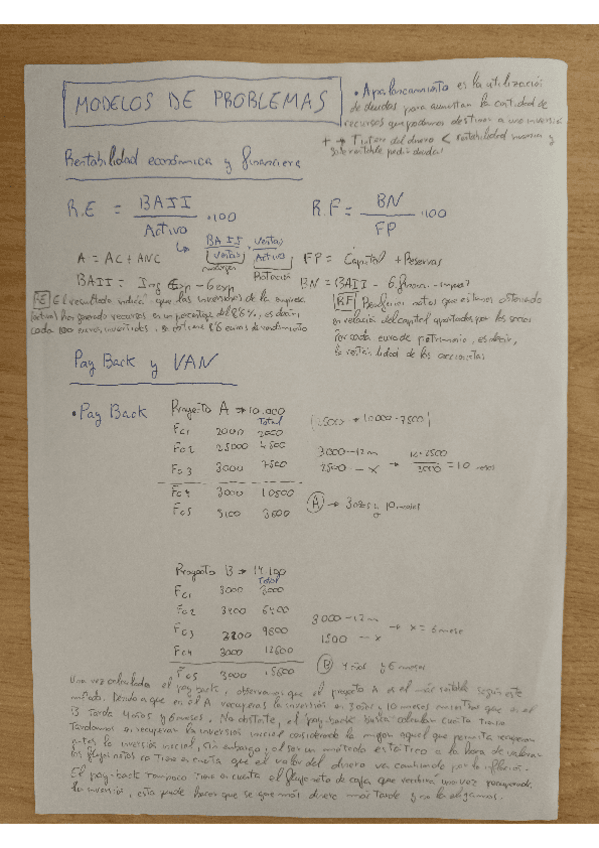 MODELOS DE PROBLEMAS
• Apalancamiento es la utilización
de deudas para aumentar la cantidad de
recursos que podemos destinar a una inversión
+ → Tipo del dinero < rentabilidad
Rentabilidad económica y financiera
R.E = BAII / Activo · 100
R.F = BN / FP · 100
↳ BAII / Ventas · Ventas / Activo
margen Rotación
A = AC + ANC
FP = Capital + Reservas
BAII = Ing Exp - G exp
BN = BAII - G.financ. - impto?
RE El resultado indica que las inversiones de la empresa
(activo) han generado recursos en un porcentaje del 8'8%, es decir,
cada 100 euros invertidos, se obtiene 8'8 euros de rendimiento
RF Beneficios netos que estamos obteniendo
en relación del capital aportados por los socios
Por cada euro de patrimonio, es decir,
la rentabilidad de los accionistas
Pay Back y VAN
• Pay Back
Proyecto A → 10.000
Total
Fc1 2000 2000
Fc2 25000 4500
Fc3 3000 7500
Fc4 3000 10500
Fc5 3100 3600
(2500 → 10000 - 7500)
3000 - 12m
2500 - x → 12·2500 / 3000 = 10 meses
A → 3 años y 10 meses
Proyecto B → 14.100
Total
Fc1 3000 3000
Fc2 3400 6400
Fc3 3200 9600
Fc4 3000 12600
Fc5 3000 15600
3000 - 12m
1500 - x → x = 6 mese
B 4 años y 6 meses
Una vez calculados el pay back, observamos que el proyecto A es el más rentable según este
método. Debido a que en A recuperas la inversión en 3 años y 10 meses mientras que en el
B tarda 4 años y 6 meses. No obstante, el pay-back busca calcular cuánto tiempo
tardamos en recuperar la inversión inicial considerando la mejor aquel que permita recuperar
antes la inversión inicial, sin embargo, al ser un método estático a la hora de valorar
los flujos netos no tiene en cuenta que el valor del dinero va cambiando por la inflación.
El pay-back tampoco tiene en cuenta el flujo neto de caja que vendría una vez recuperado
la inversión, esto puede hacer que se gane más dinero más tarde y no la elijamos.